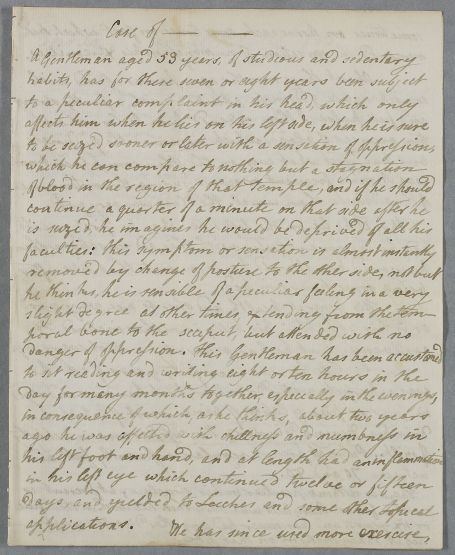 Case of — —
A Gentleman aged 53 years, of studious and sedentary
habits, has for these seven or eight years been subject
to a peculiar complaint in his head, which only
affects him when he lies on his left side, when he is sure
to be seized sooner or later with a sensation of oppression,
which he can compare to nothing but a stagnation
of blood in the region of that temple, and if he should
continue a quarter of a minute on that side after he
is seized, he imagines he would be deprived of all his
faculties: this symptom or sensation is almost instantly
removed by change of posture to the other side, not but
he thinks, he is sensible of a peculiar feeling in a very
slight degree at other times, extending from the tem-
poral bone to the occiput, but attended with no
danger of oppression. This Gentleman has been accustomed
to sit reading and writing eight or ten hours in the
day for many months together, especially in the evenings,
in consequence of which, as he thinks, about two years
ago he was affected with chillness and numbness in
his left foot and hand, and at length had an inflammation
in his left eye which continued twelve or fifteen
days, and yielded to Leeches and some other topical
applications. He has since used more exercise,